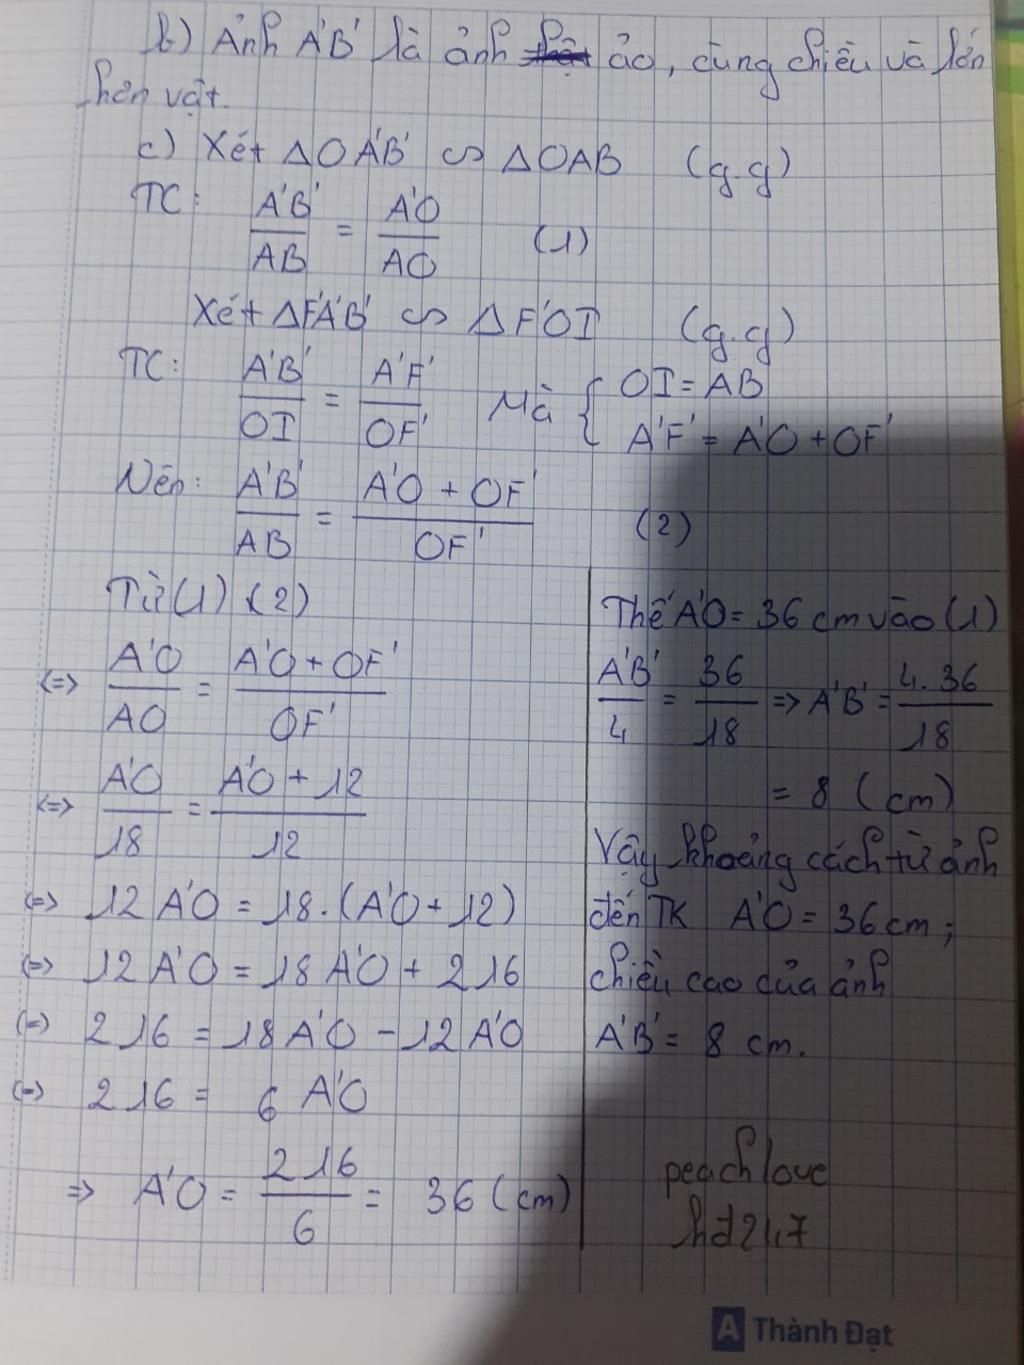 b) Ảnh A'B' là ảnh ảo, cùng chiều và lớn
hơn vật.
c) Xét ΔOA'B' ∽ ΔOAB (g.g)
TC: A'B'/AB = A'O/AO (1)
Xét ΔF'A'B' ∽ ΔF'OI (g.g)
TC: A'B'/OI = A'F'/OF' Mà { OI = AB
A'F' = A'O + OF'
Nên: A'B'/AB = (A'O + OF')/OF' (2)
Từ (1) (2)
<=> A'O/AO = (A'O + OF')/OF'
<=> A'O/18 = (A'O + 12)/12
<=> 12 A'O = 18.(A'O + 12)
<=> 12 A'O = 18 A'O + 216
<=> 216 = 18 A'O - 12 A'O
<=> 216 = 6 A'O
=> A'O = 216/6 = 36 (cm)
Thế A'O = 36 cm vào (1)
A'B'/4 = 36/18 => A'B' = 4.36/18
= 8 (cm)
Vậy khoảng cách từ ảnh
đến TK A'O = 36 cm;
chiều cao của ảnh
A'B' = 8 cm.
peachlove
hđ247
A Thành Đạt